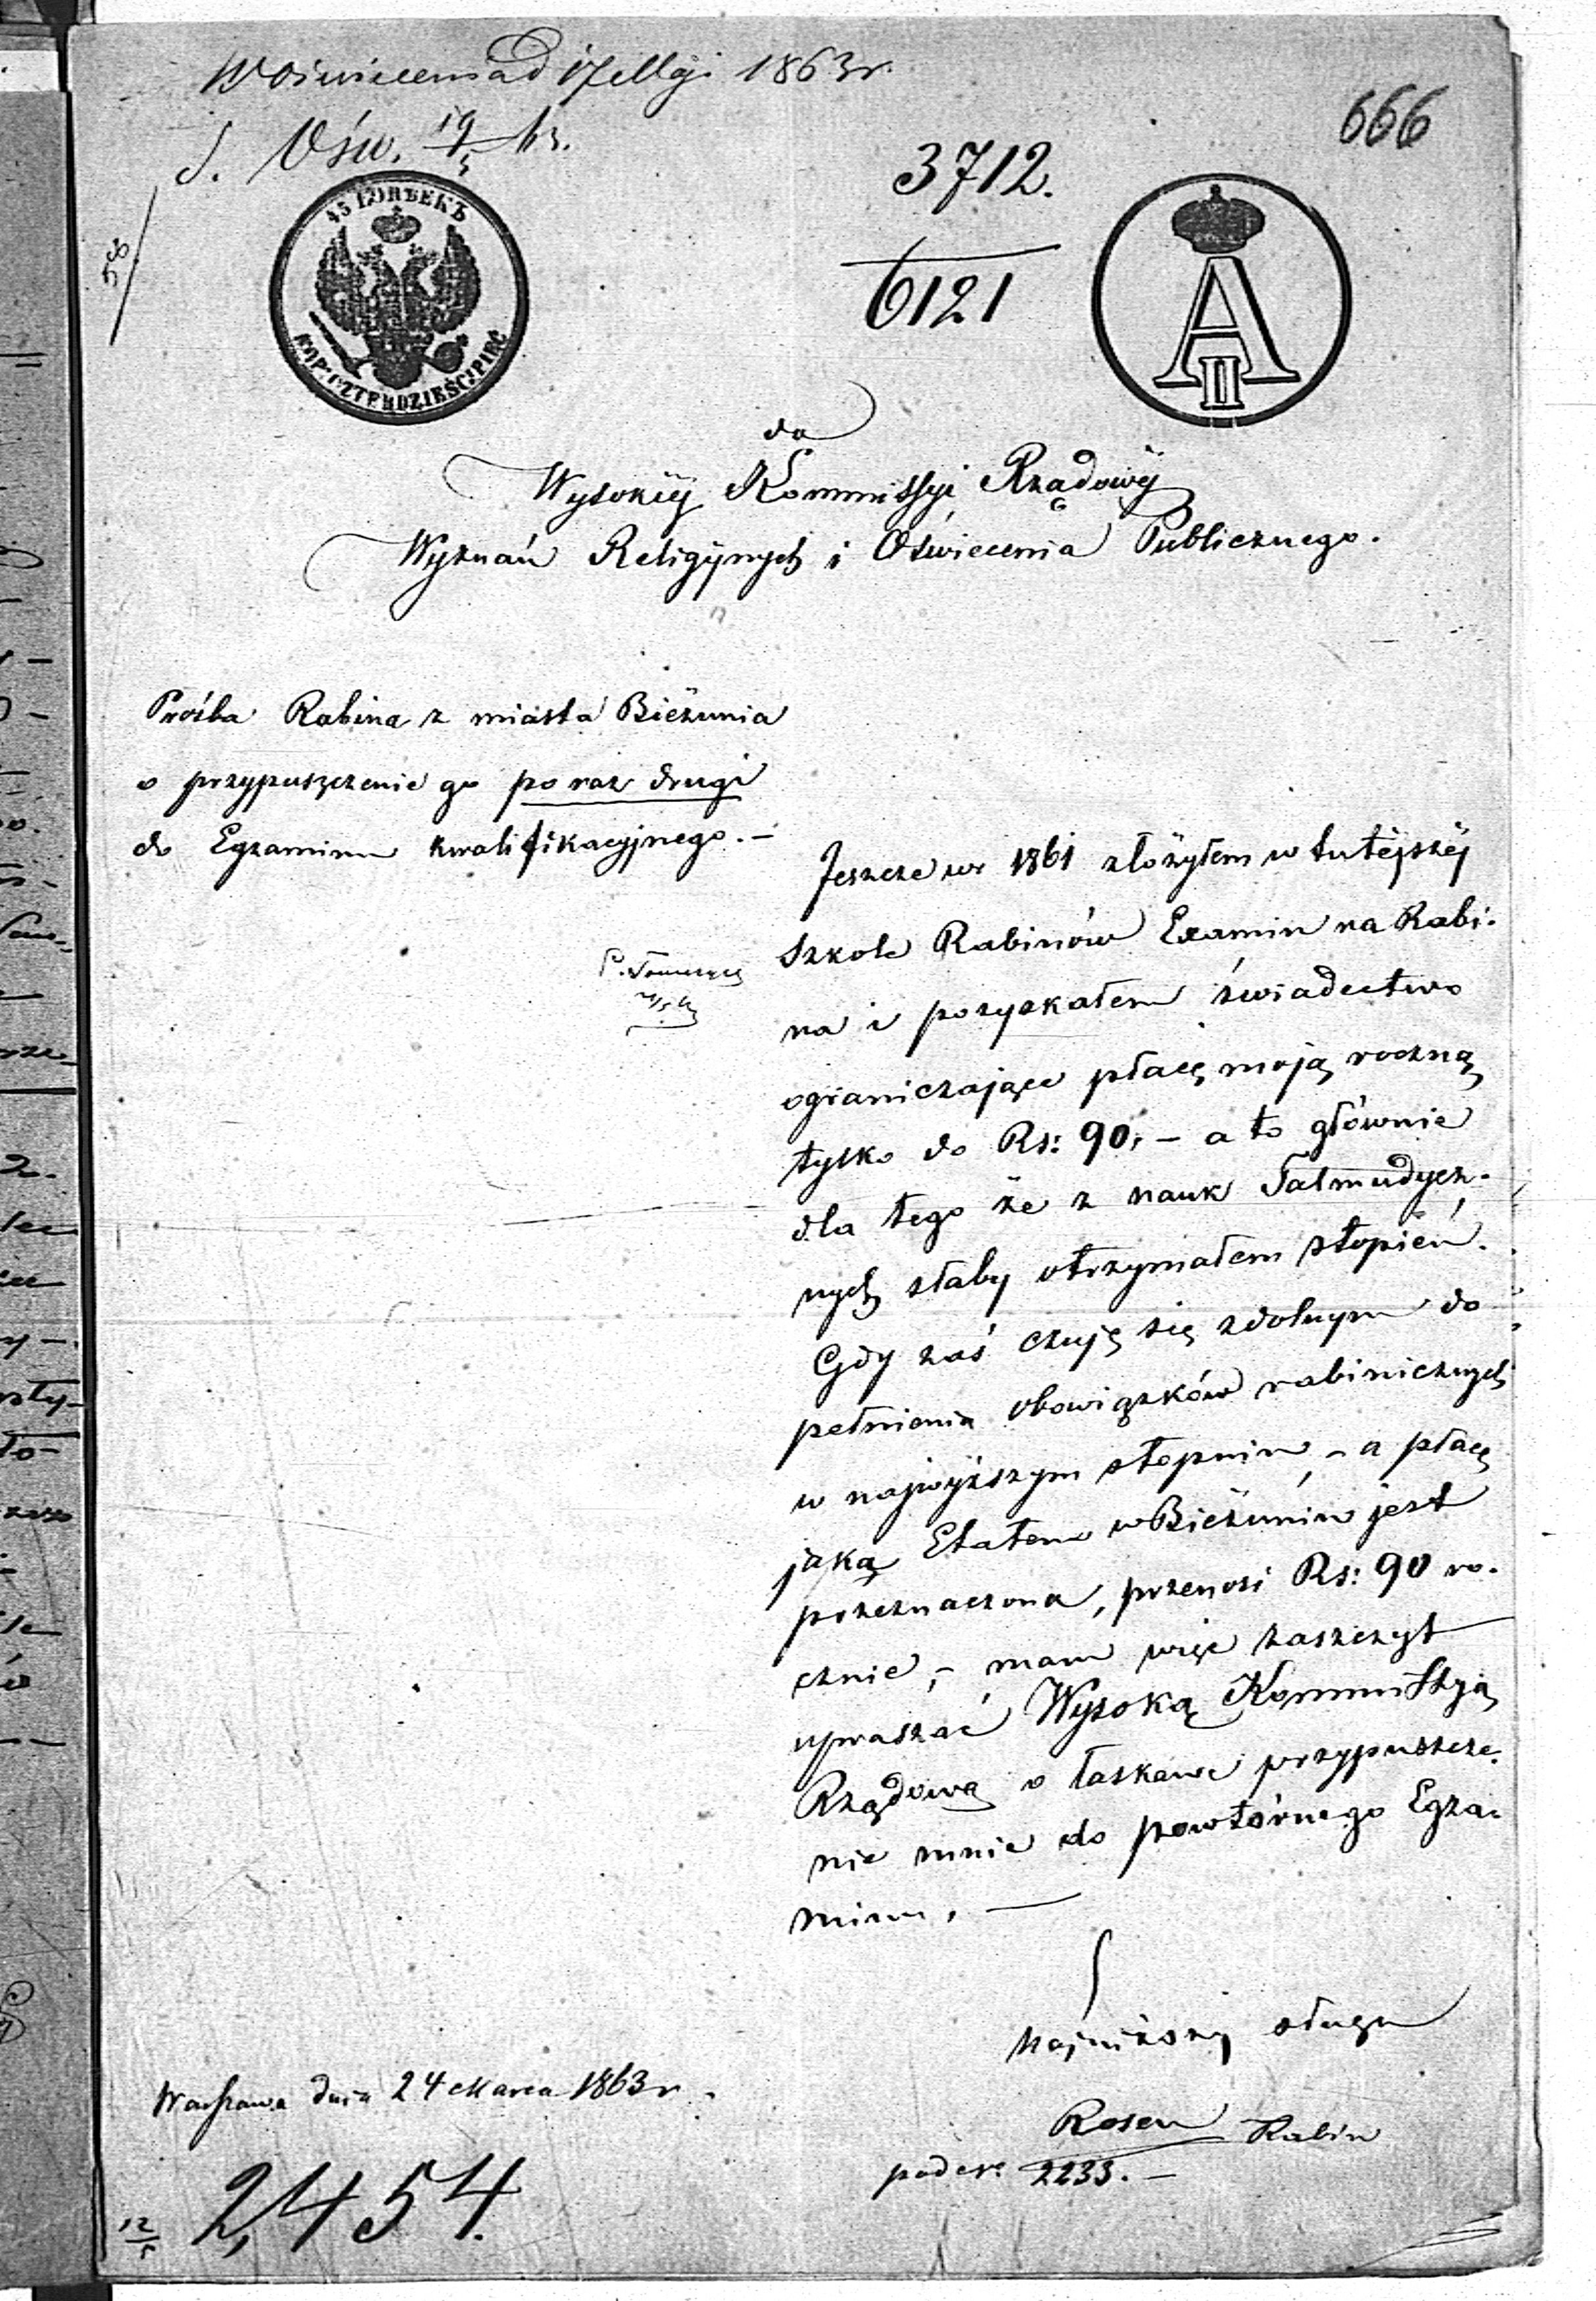 W Oświeceniad 17 Maja 1863 r.
d. Ośw. 19/5 63.
666
3712.
6121
45 КОПѢЕКЪ
KOP: CZTERDZIEŚCI PIĘĆ
A
II
do
Wysokiéj Kommissyi Rządowéj
Wyznań Religijnych i Oświecenia Publicznego.
Prośba Rabina z miasta Bieżunia
o przypuszczenie go po raz drugi
do Egzaminu kwalifikacyjnego. –
Jeszcze w r 1861 złożyłem w tutéjszéj
Szkole Rabinów Examin na Rabi-
na i pozyskałem świadectwo
ograniczające płacę moją roczną
tylko do Rs: 90, – a to głównie
dla tego że z nauk Talmudycz-
nych słaby otrzymałem stopień.
Gdy zaś czuję się zdolnym do
pełnienia obowiązków rabinicznych
w najwyższym stopniu, – a płacę
jaką Etatem w Bieżuniu jest
przeznaczona, przenosi Rs: 90 ro-
cznie, – mam więc zaszczyt
upraszać Wysoką Kommissyją
Rządową o łaskawe przypuszcze-
nie mnie do powtórnego Egza-
minu, —
Najniższy sługa
Rosen Rabin
pod N: 2233. –
Warszawa dnia 24 Marca 1863 r.
2,454.
12/5